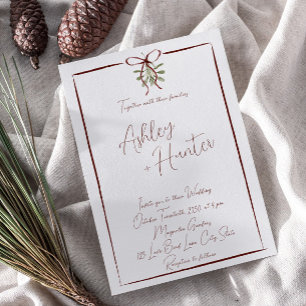 Together with their families
Ashley
+ Hunter
Invite you to their Wedding
October Twentieth, 2030 at 4 pm
Magnolia Gardens
123 Lane Road Lane, City State
Reception to follow